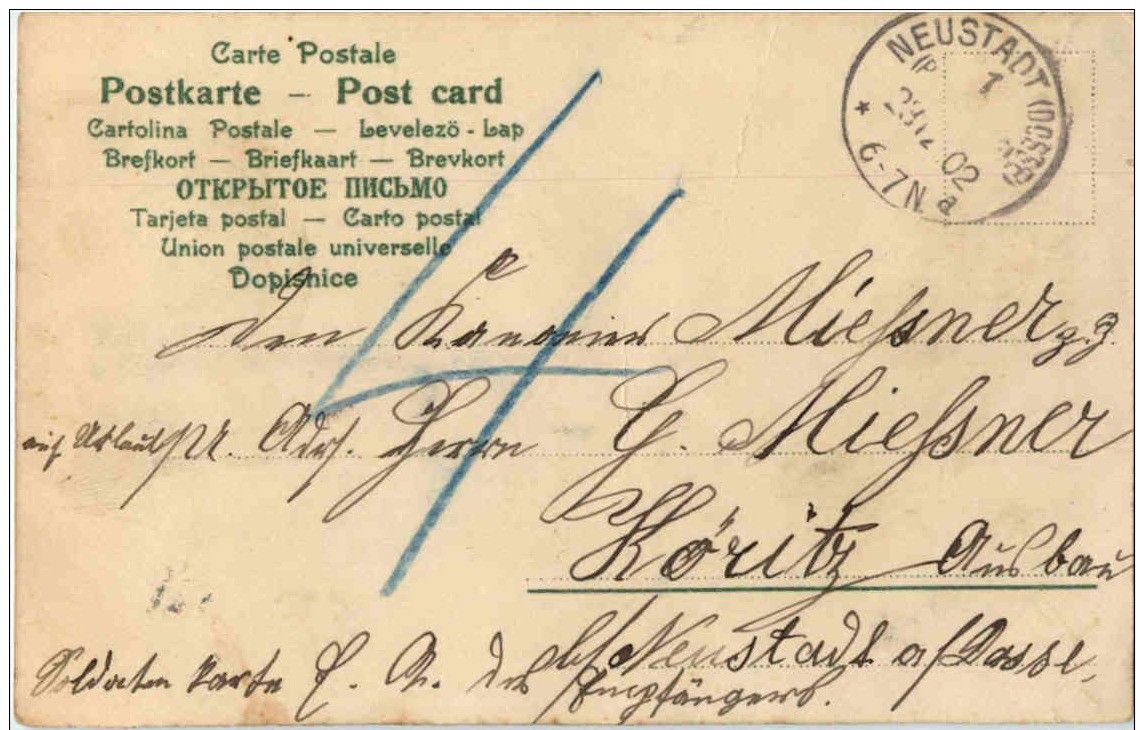 Carte Postale
Postkarte – Post card
Cartolina Postale — Levelezö - Lap
Brefkort — Briefkaart — Brevkort
ОТКРЫТОЕ ПИСЬМО
Tarjeta postal — Carto postal
Union postale universelle
Dopisnice
NEUSTADT (DOSSE)
1
02
6-7N. a
4
Den Kanonier Miessner z. Z.
auf Urlaub pr. Adr. Herrn G. Miessner
Köritz Ausbau
b/ Neustadt a/Dosse.
Soldaten karte E. A. des Empfängers.